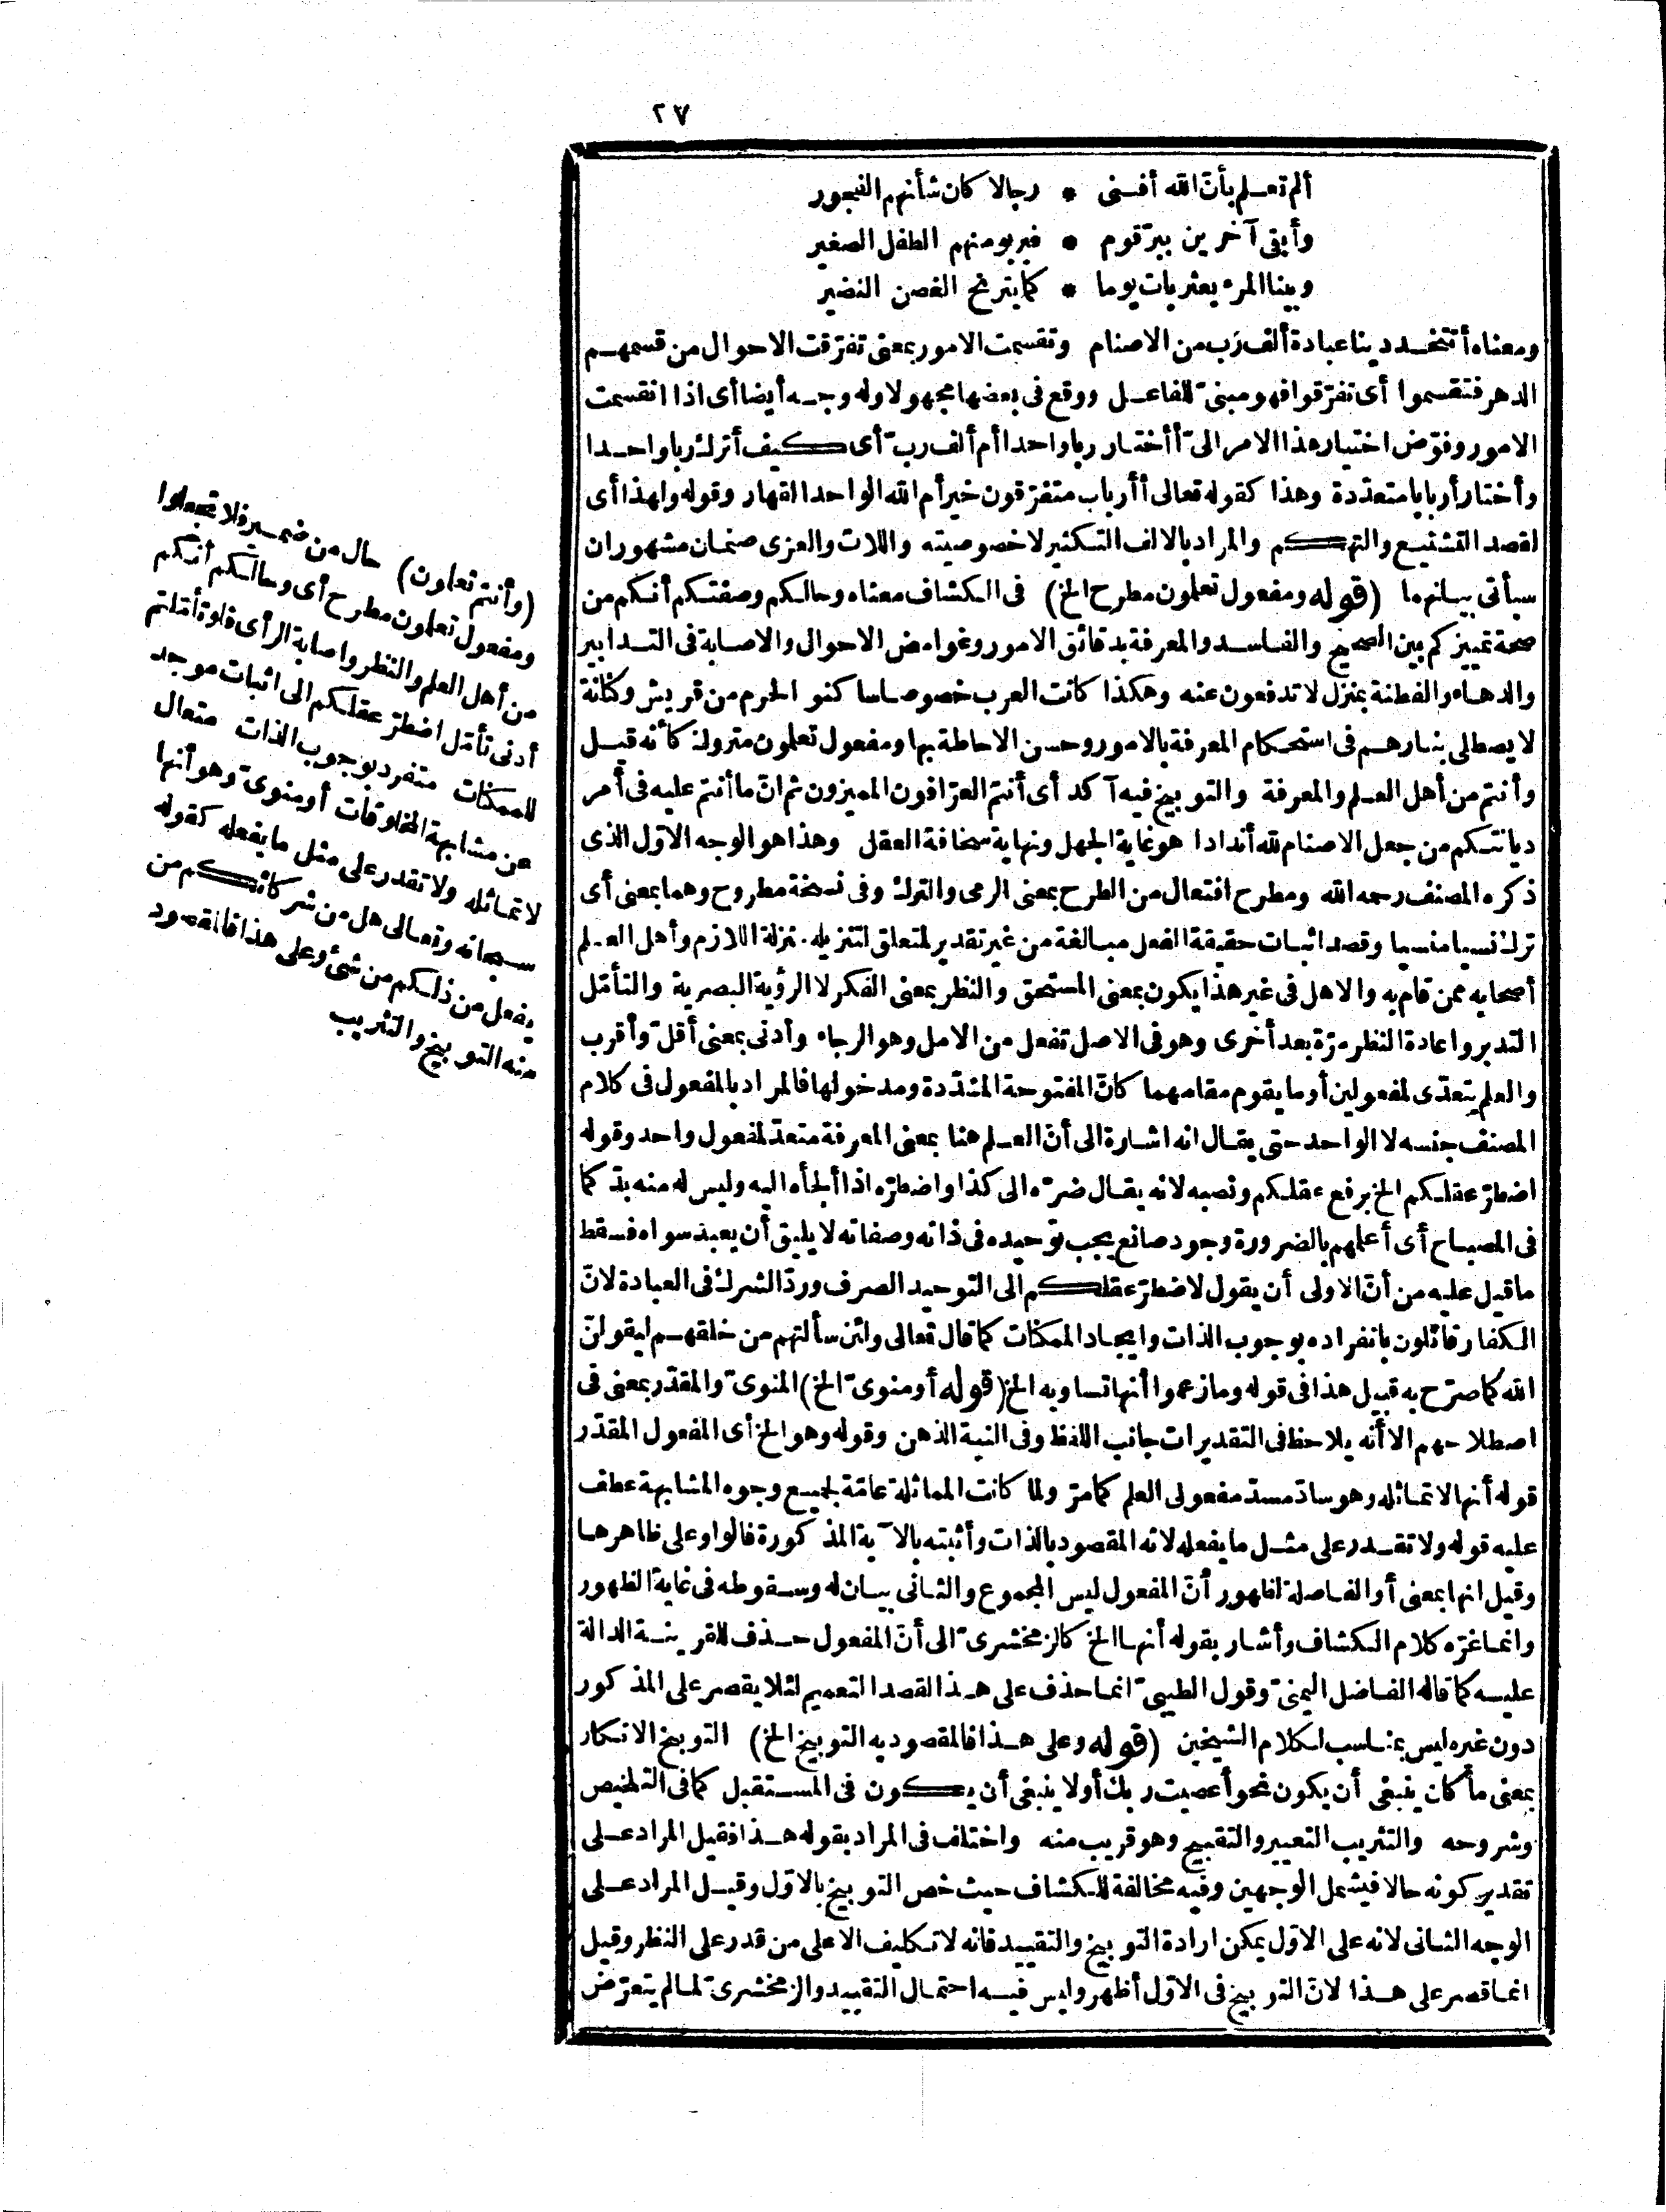 ٢٧
ألم تعلم بأنّ الله أفنى * رجالا كان شأنهم الفجور
وأبقى آخرين ببرّ قوم * فيربو منهم الطفل الصغير
وبينا المرء يعثر بات يوما * كما يترنح الغصن النضير
ومعناه أتتخذ دينا عبادة ألف رَب من الاصنام وتقسمت الامور بمعنى تفرّقت الاحوال من قسمهم
الدهر فتقسموا أى تفرّقوا فهو مبنىّ للفاعل ووقع فى بعضها مجهولا وله وجه أيضا أى اذا انقسمت
الامور وفوّض اختيار هذا الامر الىّ أأختار ربا واحدا أم ألف ربّ أى كيف أترك ربا واحدا
وأختار أربابا متعدّدة وهذا كقوله تعالى أأرباب متفرّقون خير أم الله الواحد القهار وقوله ولهذا أى
لقصد التشنيع والتهكم والمراد بالالف التكثير لا خصوصيته واللات والعزى صنمان مشهوران
سيأتى بيانهما (قوله ومفعول تعلمون مطرح الخ) فى الكشاف معناه وحالكم وصفتكم أنكم من
صحة تمييزكم بين الصحيح والفاسد والمعرفة بدقائق الامور وغوامض الاحوال والاصابة فى التدابير
والدهاء والفطنة بمنزل لا تدفعون عنه وهكذا كانت العرب خصوصا ساكنو الحرم من قريش وكنانة
لا يصطلى بنارهم فى استحكام المعرفة بالامور وحسن الاحاطة بها ومفعول تعلمون متروك كأنه قيل
وأنتم من أهل العلم والمعرفة والتوبيخ فيه آكد أى أنتم العرّافون المميزون ثم انّ ما أنتم عليه فى أمر
ديانتكم من جعل الاصنام لله أندادا هو غاية الجهل ونهاية سخافة العقل وهذا هو الوجه الاوّل الذى
ذكره المصنف رحمه الله ومطرح افتعال من الطرح بمعنى الرمى والترك وفى نسخة مطروح وهما بمعنى أى
ترك نسيا منسيا وقصد اثبات حقيقة الفعل مبالغة من غير تقدير لمتعلق لتنزيله منزلة اللازم وأهل العلم
أصحابه ممن قام به والاهل فى غير هذا يكون بمعنى المستحق والنظر بمعنى الفكر لا الرؤية البصرية والتأمّل
التدبر واعادة النظر مرّة بعد أخرى وهو فى الاصل تفعل من الامل وهو الرجاء وأدنى بمعنى أقلّ وأقرب
والعلم يتعدّى لمفعولين أو ما يقوم مقامهما كانّ المفتوحة المشدّدة ومدخولها فالمراد بالمفعول فى كلام
المصنف جنسه لا الواحد حتى يقال انه اشارة الى أنّ العلم هنا بمعنى المعرفة متعدّ لمفعول واحد وقوله
اضطرّ عقلكم الخ برفع عقلكم ونصبه لانه يقال ضرّه الى كذا واضطرّه اذا ألجأه اليه وليس له منه بدّ كما
فى المصباح أى أعلمهم بالضرورة وجود صانع يجب توحيده فى ذاته وصفاته لا يليق أن يعبد سواه فسقط
ما قيل عليه من أنّ الاولى أن يقول لاضطرّ عقلكم الى التوحيد الصرف وردّ الشرك فى العبادة لانّ
الكفار قائلون بانفراده بوجوب الذات وايجاد الممكنات كما قال تعالى ولئن سألتهم من خلقهم ليقولنّ
الله كما صرّح به قبيل هذا فى قوله وما زعموا أنها تساويه الخ (قوله أو منوىّ الخ) المنوىّ والمقدّر بمعنى فى
اصطلاحهم الا أنّه يلاحظ فى التقديرات جانب اللفظ وفى النية الذهن وقوله وهو الخ أى المفعول المقدّر
قوله أنها لا تماثله وهو سادّ مسدّ مفعولى العلم كما مرّ ولما كانت المماثلة عامّة لجميع وجوه المشابهة عطف
عليه قوله ولا تقدر على مثل ما يفعله لانه المقصود بالذات وأثبته بالآية المذكورة فالواو على ظاهرها
وقيل انها بمعنى أو الفاصلة لظهور أنّ المفعول ليس المجموع والثانى بيان له وسقوطه فى غاية الظهور
وانما غرّه كلام الكشاف وأشار بقوله أنها الخ كالزمخشرىّ الى أنّ المفعول حذف للقرينة الدالة
عليه كما قاله الفاضل اليمنىّ وقول الطيبىّ انما حذف على هذا القصد التعميم لئلا يقصر على المذكور
دون غيره ليس بمناسب لكلام الشيخين (قوله وعلى هذا فالمقصود به التوبيخ الخ) التوبيخ الانكار
بمعنى ما كان ينبغى أن يكون نحو أعصيت ربك أو لا ينبغى أن يكون فى المستقبل كما فى التلخيص
وشروحه والتثريب التعيير والتقبيح وهو قريب منه واختلف فى المراد بقوله هذا فقيل المراد على
تقدير كونه حالا فيشمل الوجهين وفيه مخالفة للكشاف حيث خص التوبيخ بالاوّل وقيل المراد على
الوجه الثانى لانه على الاوّل يمكن ارادة التوبيخ والتقييد فانه لا تكليف الا على من قدر على النظر وقيل
انما قصر على هذا لانّ التوبيخ فى الاوّل أظهر وليس فيه احتمال التقييد والزمخشرىّ لما لم يتعرّض
(وأنتم تعلمون) حال من ضمير فلا تجعلوا
ومفعول تعلمون مطرح أى وحالكم أنكم
من أهل العلم والنظر واصابة الرأى فلو تأملتم
أدنى تأمّل اضطرّ عقلكم الى اثبات موجد
للممكنات متفرد بوجوب الذات متعال
عن مشابهة المخلوقات أو منوىّ وهو أنها
لا تماثله ولا تقدر على مثل ما يفعله كقوله
سبحانه وتعالى هل من شركائكم من
يفعل من ذلكم من شئ وعلى هذا فالمقصود
منه التوبيخ والتثريب